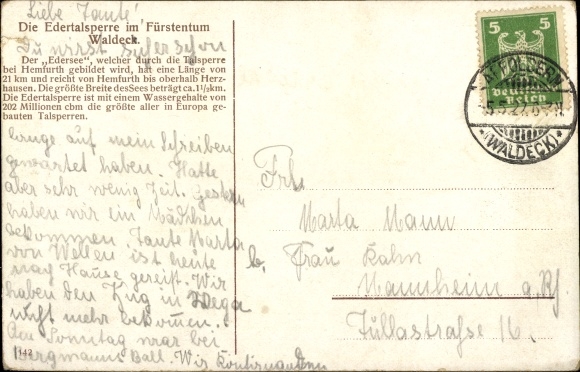 Liebe Tante!
Die Edertalsperre im Fürstentum
Waldeck.
Du wirst sicher schon
Der „Edersee", welcher durch die Talsperre
bei Hemfurth gebildet wird, hat eine Länge von
21 km und reicht von Hemfurth bis oberhalb Herz-
hausen. Die größte Breite des Sees beträgt ca. 1½ km.
Die Edertalsperre ist mit einem Wassergehalte von
202 Millionen cbm die größte aller in Europa ge-
bauten Talsperren.
lange auf mein Schreiben
gewartet haben. Hatte
aber sehr wenig Zeit. Gestern
haben wir ein Mädchen
bekommen. Tante Marta
von Wellen ist heute
nach Hause gereist. Wir
haben den Zug in Wega
nicht mehr bekommen.
Am Sonntag war bei
Bergmanns Ball. Wir Konfirmanden
142
5 5
Deutsches
Reich
(WALDECK)
Frl.
Marta Mann
b. Frau Kahn
Mannheim a. Rh
Tullastraße 16.